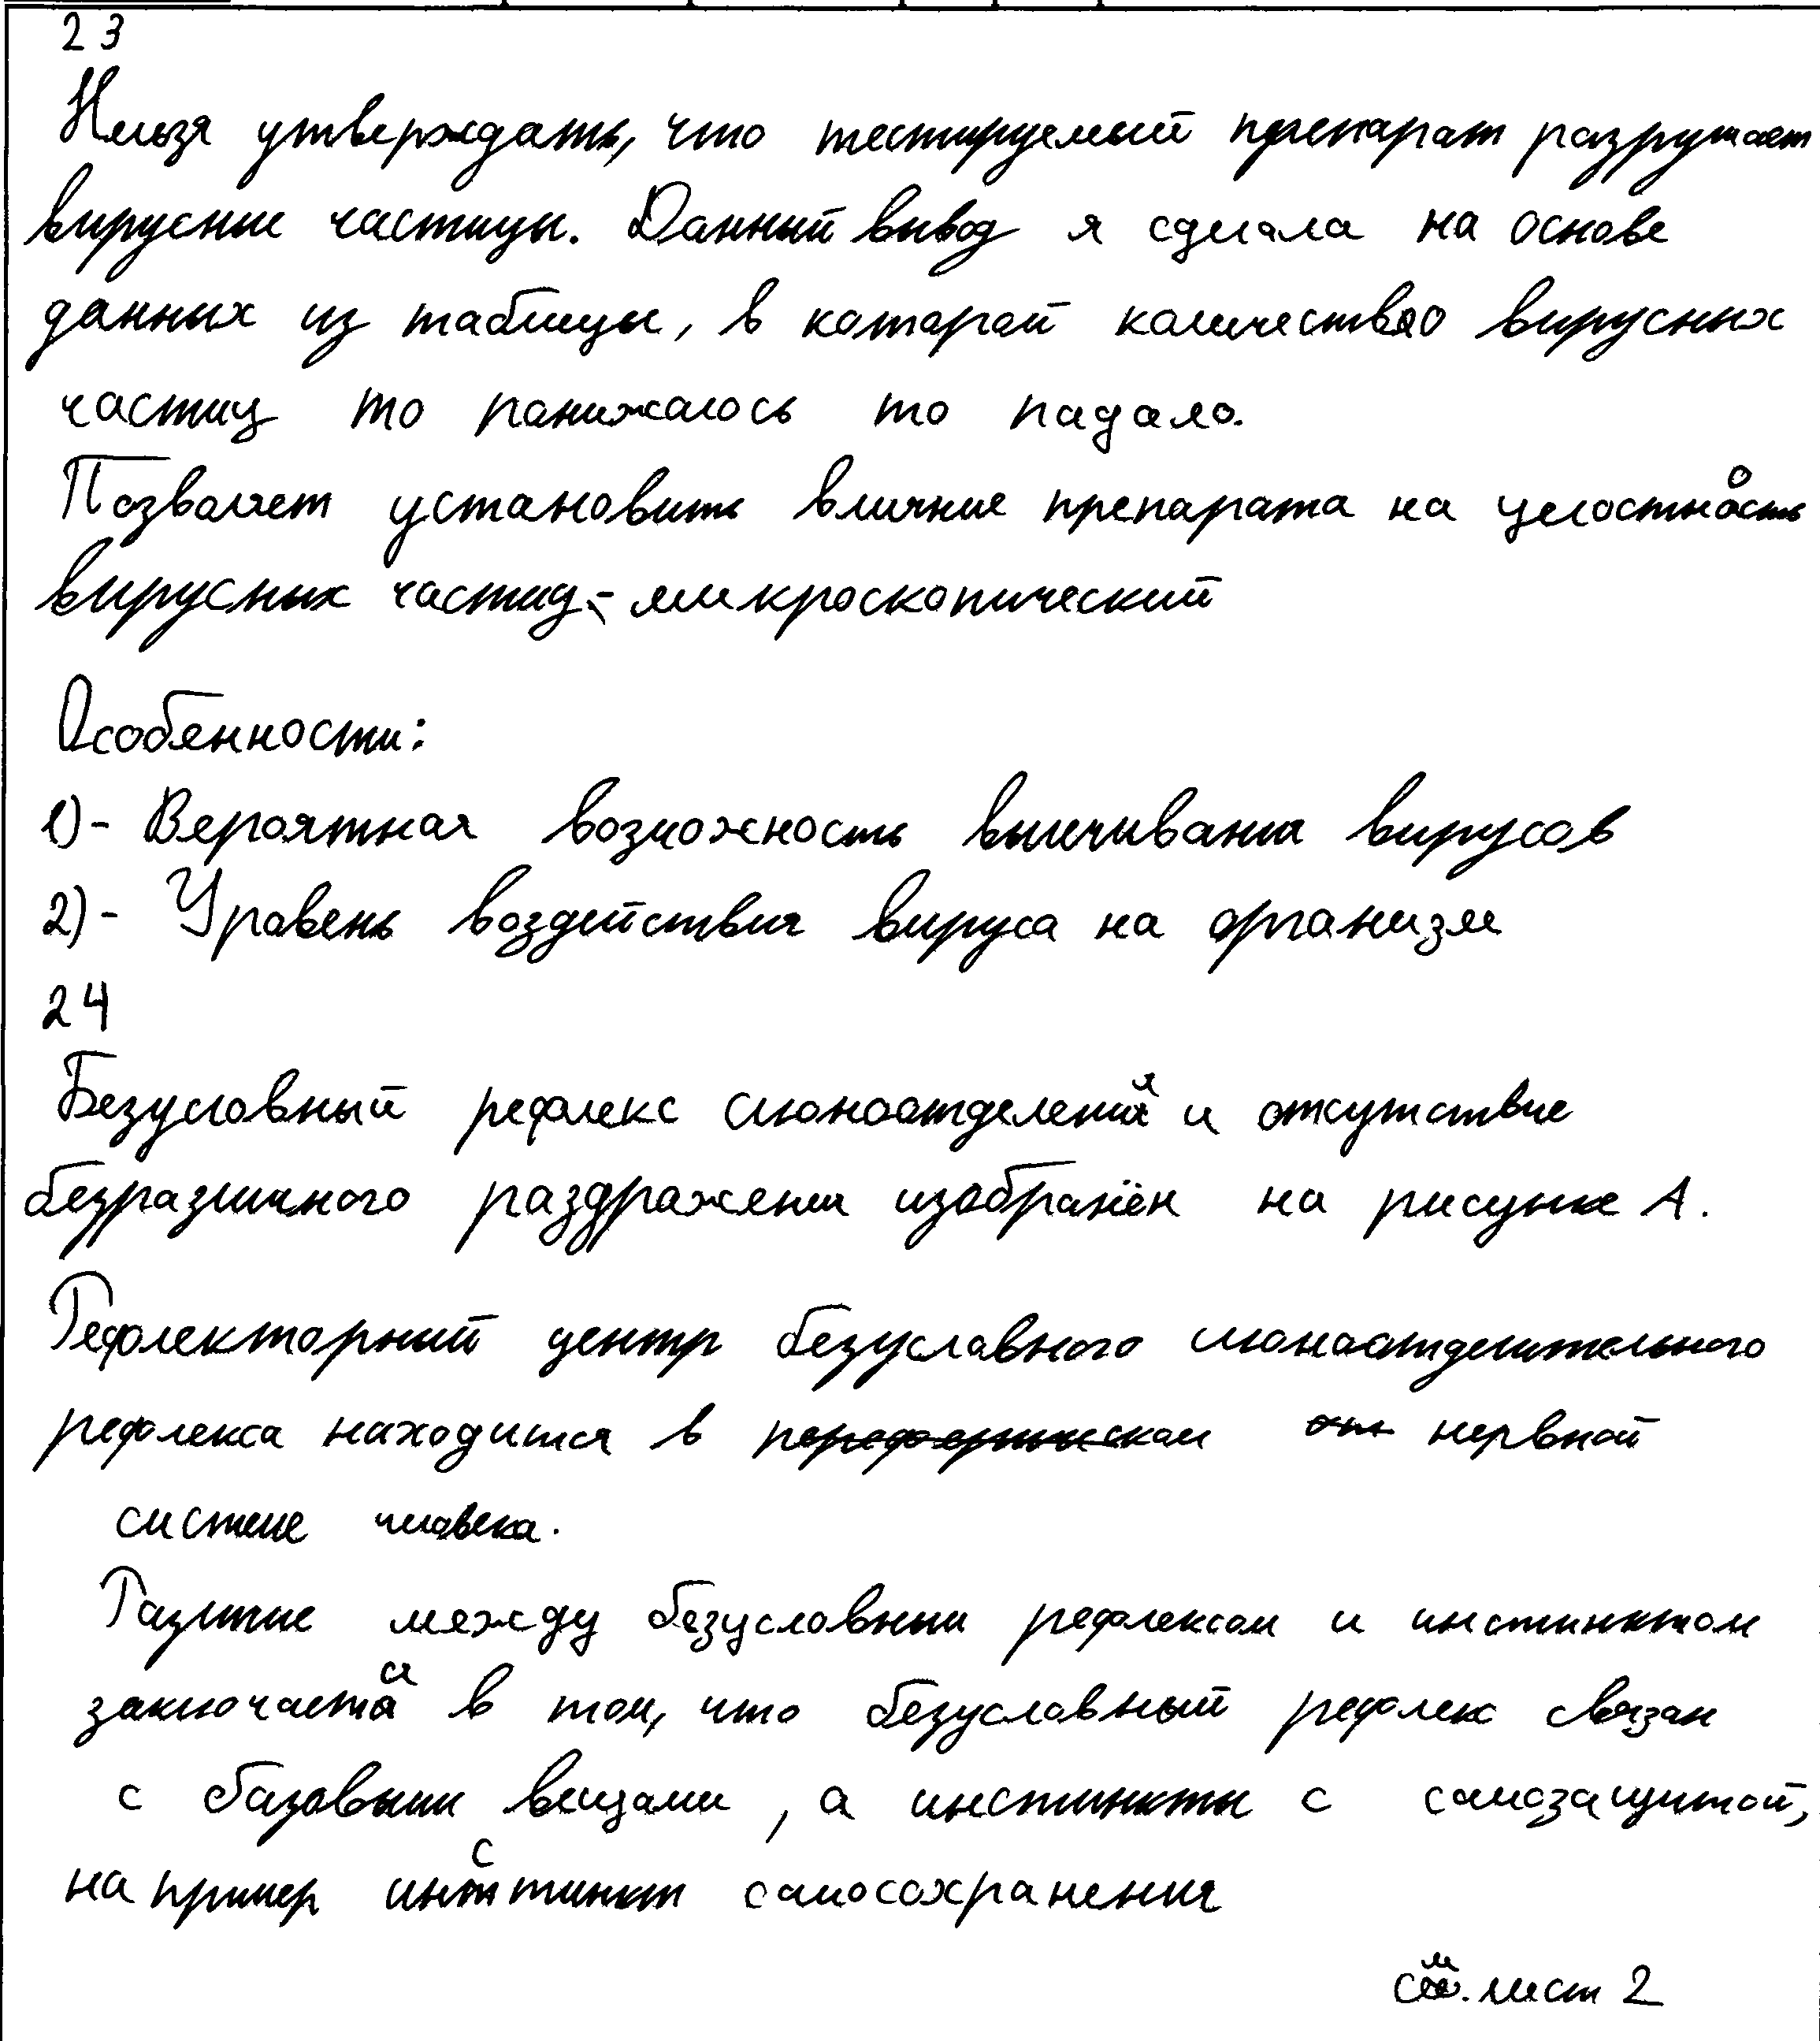 23
Нельзя утверждать, что тестируемый препарат разрушает
вирусные частицы. Данный вывод я сделала на основе
данных из таблицы, в которой количество вирусных
частиц то понижалось то падало.
Позволяет установить влияние препарата на целостность
вирусных частиц - микроскопический
Особенности:
1)- Вероятная возможность вылечивания вирусов
2)- Уровень воздействия вируса на организм
24
Безусловный рефлекс слюноотделения и отсутствие
безразличного раздражения изображён на рисунке А.
Рефлекторный центр безусловного слюноотделительного
рефлекса находится в нервной
системе человека.
Различие между безусловным рефлексом и инстинктом
заключается в том, что безусловный рефлекс связан
с базовыми вещами, а инстинкты с самозащитой,
на пример инстинкт самосохранения
см. лист 2